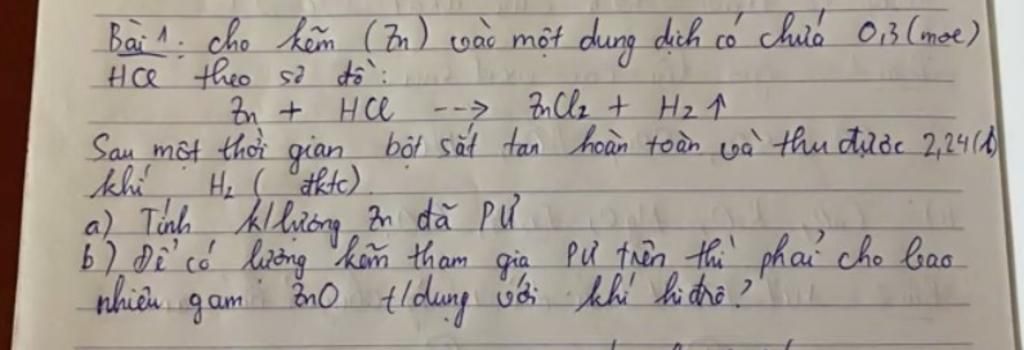 Bài 1: cho kẽm (Zn) vào một dung dịch có chứa 0,3 (mol)
HCl theo sơ đồ:
Zn + HCl --→ ZnCl2 + H2↑
Sau một thời gian bột sắt tan hoàn toàn và thu được 2,24(l)
khí H2 (đktc)
a) Tính k/lượng Zn đã PƯ
b) Để có lượng kẽm tham gia PƯ trên thì phải cho bao
nhiêu gam ZnO t/dụng với khí hiđrô?